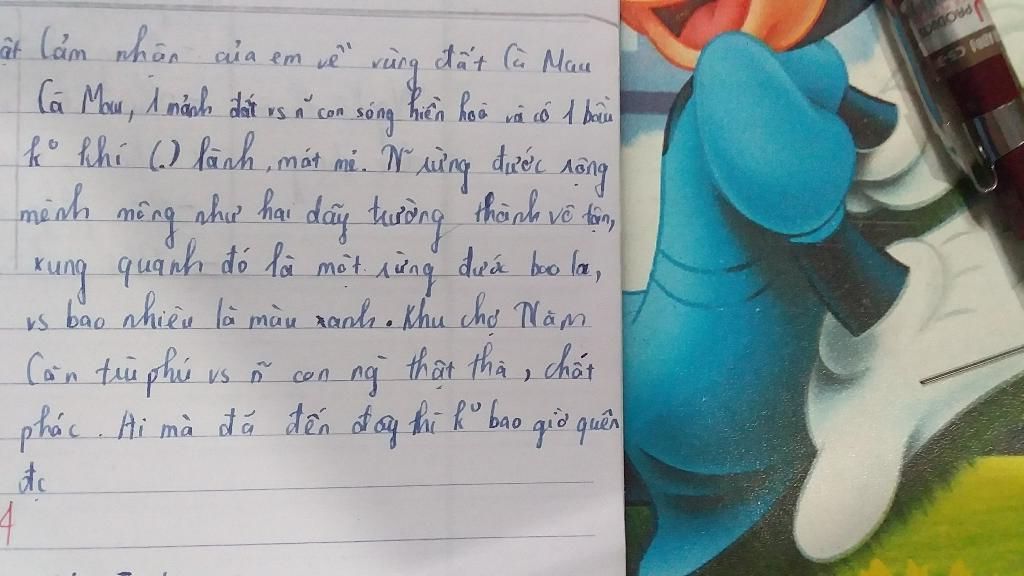 ật Cảm nhận của em về vùng đất Cà Mau
Cà Mau, 1 mảnh đất vs ~ con sóng hiền hoà và có 1 bầu
k° khí (.) lành, mát mẻ. N~ rừng đước rộng
mênh mông như hai dãy trường thành vô tận,
xung quanh đó là một rừng đước bao la,
vs bao nhiêu là màu xanh. Khu chợ Năm
Căn trù phú vs ~ con ng thật thà, chất
phác. Ai mà đã đến đây thì k° bao giờ quên
đc
4
PRODU